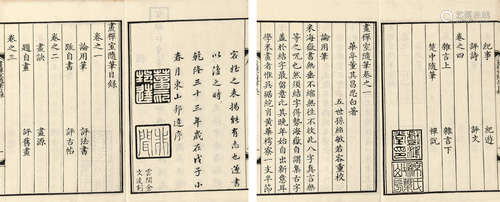 以洽之時
乾隆三十三年歲在戊子小
春月東山邨
畫禪室隨筆目錄
卷之一
論用筆 評法書
跋自書 評古帖
卷之二
畫訣 畫源
題自畫 評舊畫
卷之三
紀事 紀遊
評詩 評文
卷之四
雜言上 雜言下
楚中隨筆 禪說
畫禪室隨筆卷之一
華亭董其昌思白著
五世孫紹敏若容重校
論用筆
米海嶽書無垂不縮無往不收此八字真言無
等之咒也然須結字得勢海嶽自謂集古字
蓋於結字最留意比其晚年始自出新意耳
學米書者惟吳琚絕肖黃華樗寮一支半節